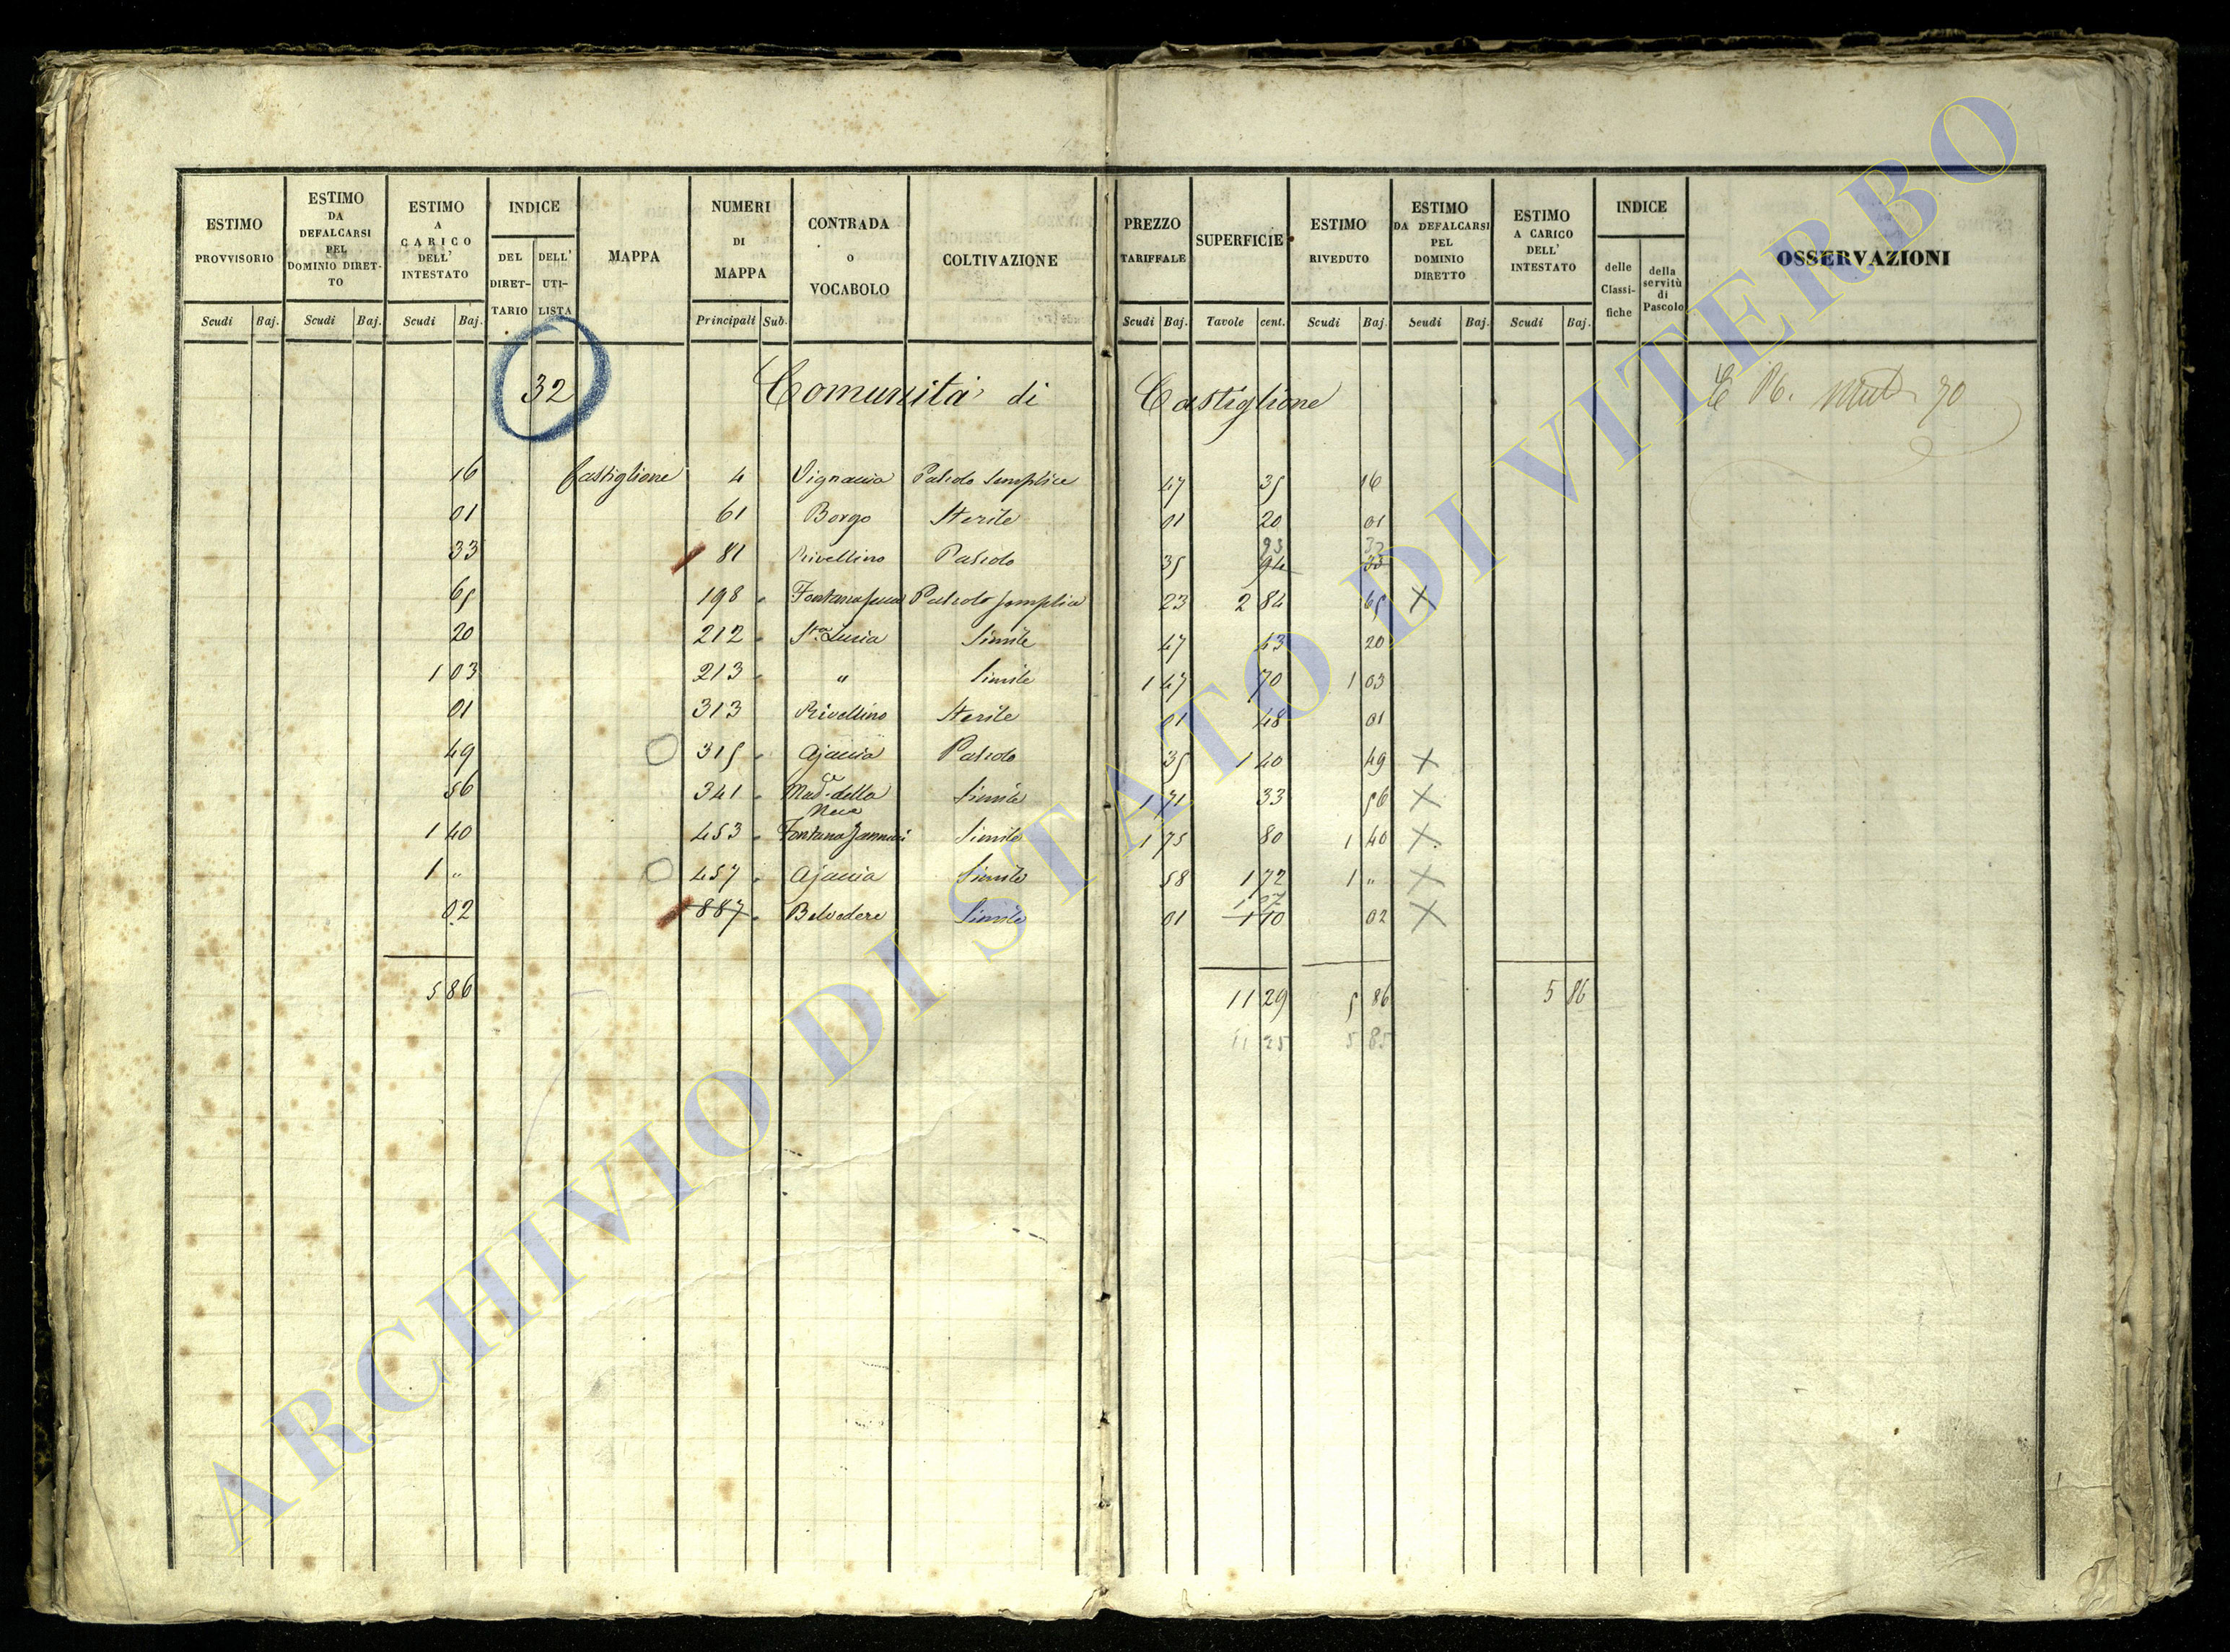 ESTIMO PROVVISORIO Scudi Baj.
ESTIMO DA DEFALCARSI PEL DOMINIO DIRET- TO Scudi Baj.
ESTIMO A CARICO DELL' INTESTATO Scudi Baj.
INDICE DEL DIRET- TARIO DELL' UTI- LISTA
MAPPA
NUMERI DI MAPPA Principali Sub.
CONTRADA O VOCABOLO
COLTIVAZIONE
PREZZO TARIFFALE Scudi Baj.
SUPERFICIE Tavole cent.
ESTIMO RIVEDUTO Scudi Baj.
ESTIMO DA DEFALCARSI PEL DOMINIO DIRETTO Scudi Baj.
ESTIMO A CARICO DELL' INTESTATO Scudi Baj.
INDICE delle Classi- fiche della servitù di Pascolo
OSSERVAZIONI
32 Comunità di Castiglione 70
16 Castiglione 4 Vignaccia Pascolo semplice 47 35 16
01 61 Borgo Sterile 01 20 01
93 32
33 81 Rivellino Pascolo 35 94 33
65 198 Pascolo semplice 23 2 84 65 X
20 212 Sta. Lucia Simile 47 43 20
1 03 213 " Simile 1 47 70 1 03
01 313 Rivellino Sterile 01 48 01
49 315 Ajaccia Pascolo 35 1 40 49 X
56 341 Mad.a della Neve Simile 1 71 33 56 X
1 40 453 Simile 1 75 80 1 40 X
1 " 457 Ajaccia Simile 58 1 72 1 " X
02 887 Belvedere Simile 01 1 10 02 X
5 86 11 29 5 86 5 86
11 25 5 85
ARCHIVIO DI STATO DI VITERBO